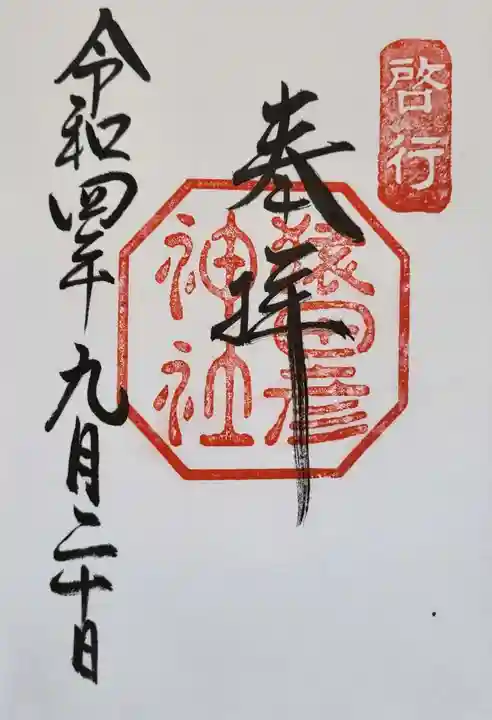 啓行
奉拝
猿田彦
神社
令和四年九月二十日